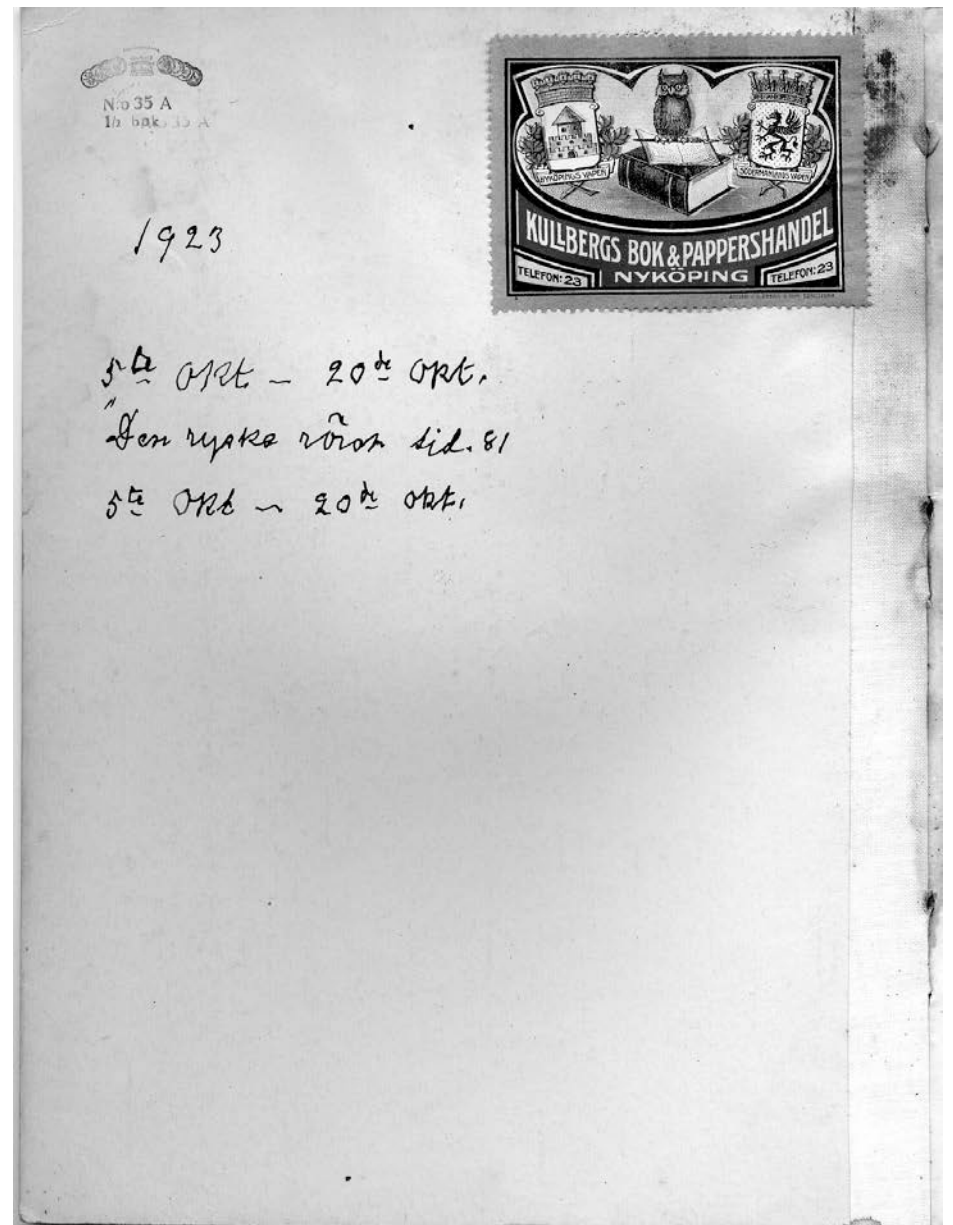 N:o 35 A
1923
NYKÖPINGS VAPEN
SÖDERMANLANDS VAPEN
KULLBERGS BOK & PAPPERSHANDEL
TELEFON: 23 NYKÖPING TELEFON: 23
5te Okt – 20de Okt.
"Den ryska sid. 81
5te Okt – 20de okt.